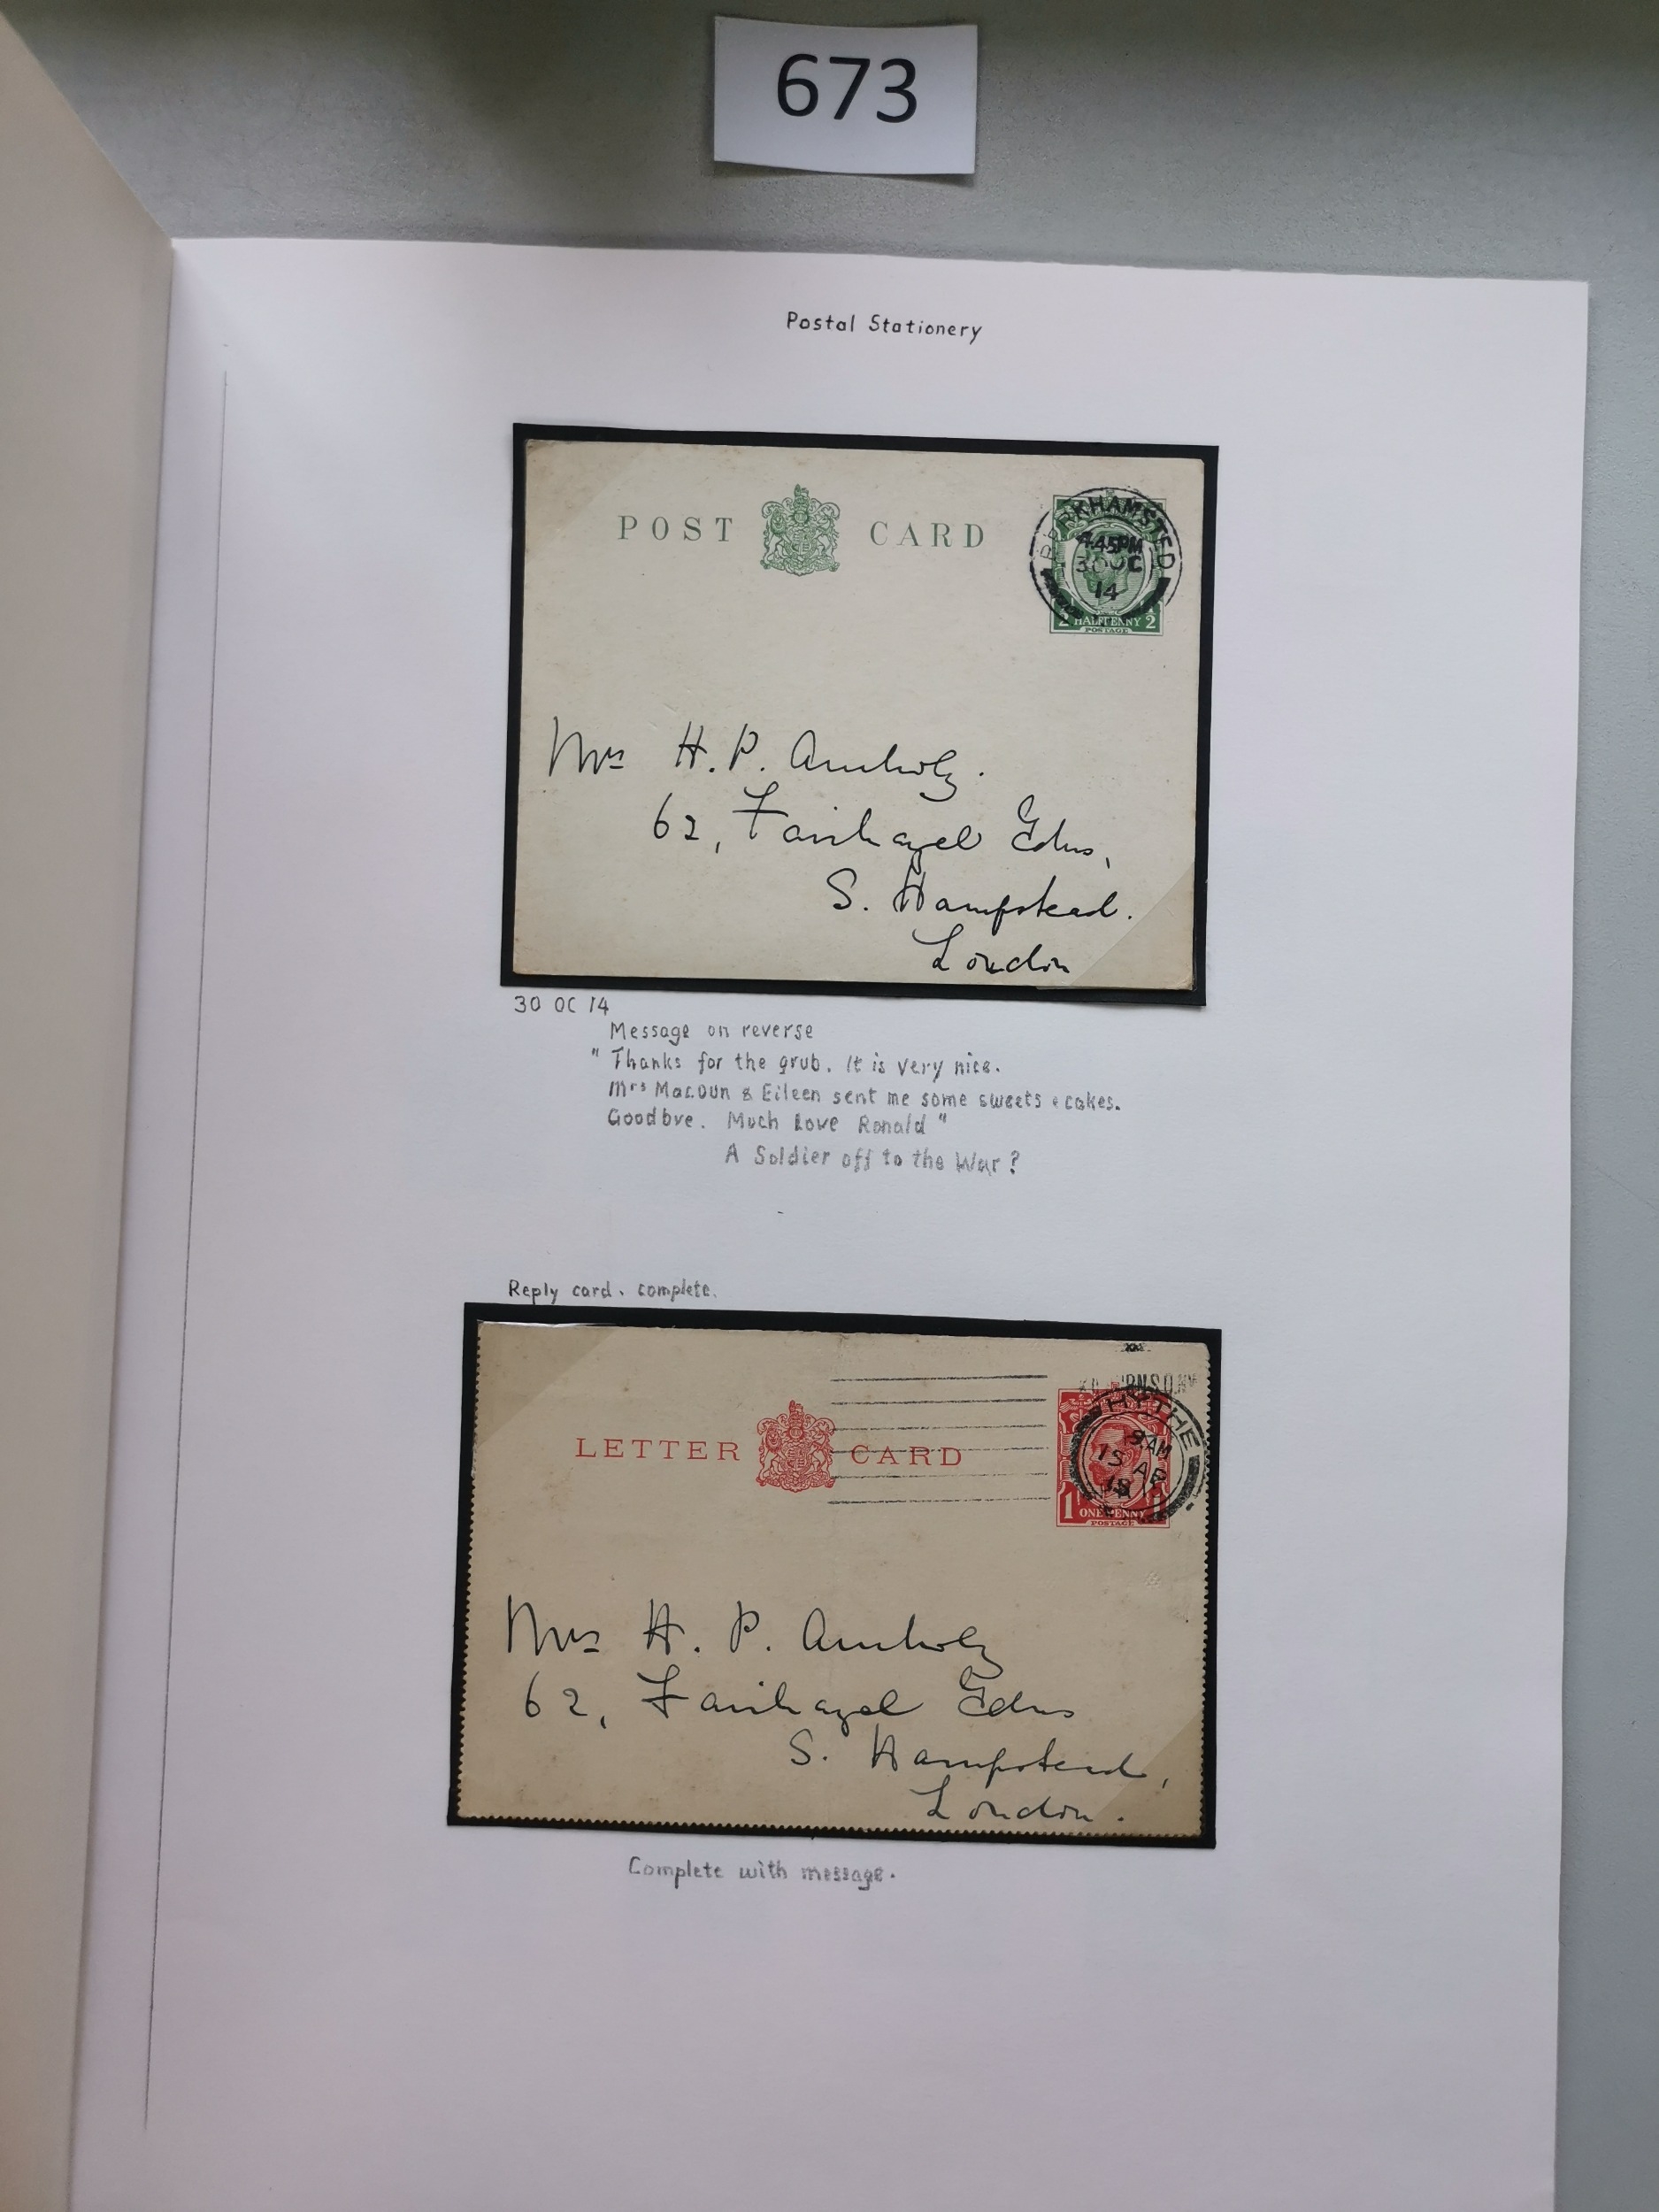 673
Postal Stationery
POST CARD
BERKHAMSTED
4.45PM
30 OC
14
HALFPENNY
POSTAGE
Mrs H. P. Arnholz.
62, Fairhazel Gdns,
S. Hampstead.
London
30 OC 14
Message on reverse
" Thanks for the grub. It is very nice.
Mrs Macoun & Eileen sent me some sweets & cakes.
Goodbye. Much Love Ronald "
A Soldier off to the War?
Reply card. complete.
LETTER CARD
HYTHE
9AM
15 AP
1 ONE PENNY 1
POSTAGE
Mrs H. P. Arnholz
62, Fairhazel Gdns
S. Hampstead,
London.
Complete with message.